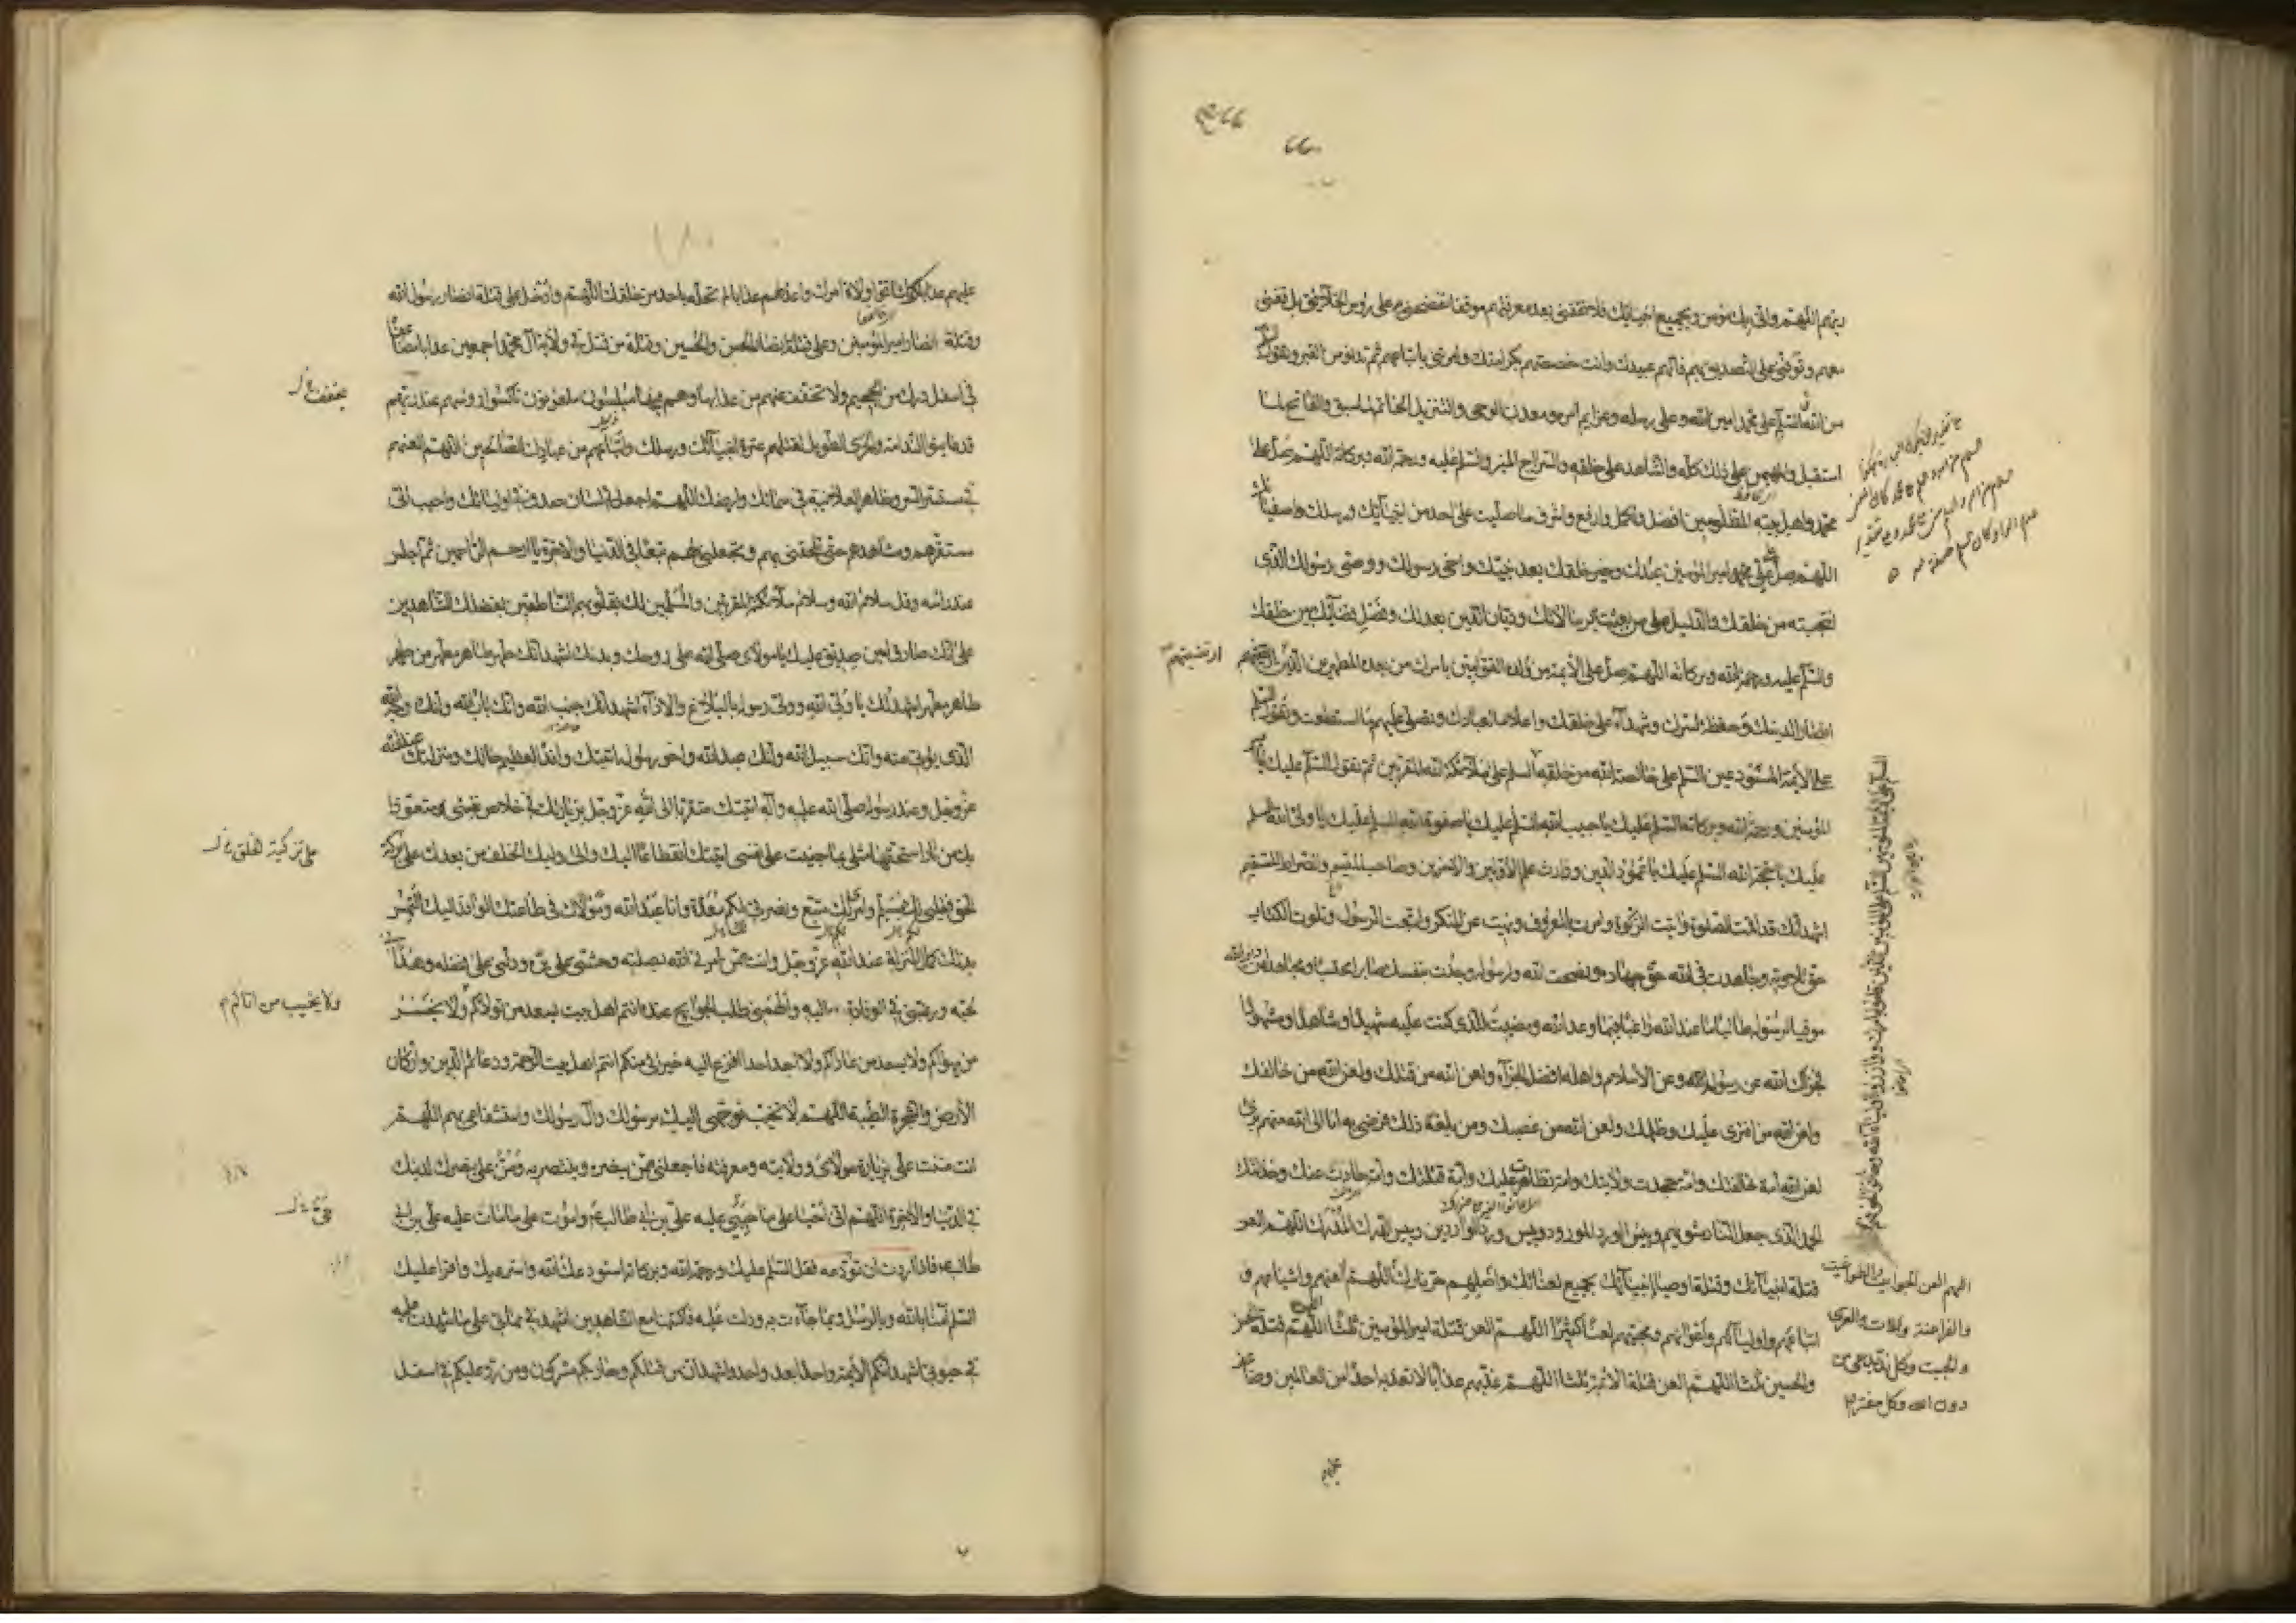 بينهم اللهم واني بك مؤمن وبجميع انبيائك فلا تقفني بعد معرفتهم موقفا تفضحني به على رؤس الخلائق بل قفني
معهم وتوفني على التصديق بهم فانهم عبيدك وانت خصصتهم بكرامتك وامرتني باتباعهم ثم تدنو من القبر وتقول السلم
من الله السلم على محمد امين الله وعلى رسله وعزايم امره ومعدن الوحي والتنزيل الخاتم لما سبق والفاتح لما
استقبل والمهيمن على ذلك كله والشاهد على خلقه والسراج المنير والسلم عليه ورحمة الله وبركاته اللهم صل على
محمد واهل بيته المظلومين افضل واكمل وارفع واشرف ما صليت على احد من انبيائك ورسلك واصفيائك
اللهم صل على امير المؤمنين عبدك وخير خلقك بعد نبيك واخي رسولك ووصي رسولك الذي
انتجبته من خلقك والدليل على من بعثته برسالاتك وديان الدين بعدلك وفصل قضائك بين خلقك
والسلم عليه ورحمة الله وبركاته اللهم صل على الأئمة من ولده القوامين بامرك من بعده المطهرين الذين ارتضيتهم
انصارا لدينك وحفظة لسرك وشهداء على خلقك واعلاما لعبادك وتصلي عليهم ما استطعت وتقول السلم
على الأئمة المستودعين السلم على خالصة الله من خلقه السلم على ملائكة الله المقربين ثم تقول السلم عليك يا امير
المؤمنين ورحمة الله وبركاته السلم عليك يا حبيب الله السلم عليك يا صفوة الله السلم عليك يا ولي الله السلم
عليك يا حجة الله السلم عليك يا عمود الدين ووارث علم الأولين والآخرين وصاحب الميسم والصراط المستقيم
اشهد انك قد اقمت الصلوة واتيت الزكوة وامرت بالمعروف ونهيت عن المنكر واتبعت الرسول وتلوت الكتاب
حق تلاوته وجاهدت في الله حق جهاده ونصحت لله ولرسوله وجدت بنفسك صابرا محتسبا ومجاهدا عن دين الله
موقيا لرسوله طالبا ما عند الله راغبا فيما وعد الله ومضيت للذي كنت عليه شهيدا وشاهدا ومشهودا
فجزاك الله عن رسوله وعن الاسلام واهله افضل الجزاء ولعن الله من قتلك ولعن الله من خالفك
ولعن الله من افترى عليك وظلمك ولعن الله من غصبك ومن بلغه ذلك فرضي به انا الى الله منهم بريء
لعن الله امة خالفتك وامة جحدت ولايتك وامة تظاهرت عليك وامة قتلتك وامة حادت عنك وخذلتك
الحمد لله الذي جعل النار مثويهم وبئس الورد المورود وبئس ورد الواردين وبئس الدرك المدرك اللهم العن
قتلة انبيائك وقتلة اوصياء انبيائك بجميع لعناتك واصلهم حر نارك اللهم العنهم واشياعهم و
اتباعهم واوليائهم واعوانهم ومحبيهم لعنا كثيرا اللهم العن قتلة امير المؤمنين ثلثا اللهم العن قتلة الحسن
والحسين ثلثا اللهم العن قتلة الائمة ثلثا اللهم عذبهم عذابا لا تعذبه احدا من العالمين وضاعف
ارتضيتهم
اللهم العن الجوابيت والطواغيت
والفراعنة واللات والعزى
والجبت وكل ند يدعى من
دون الله وكل مفتر
عليهم عذابك كما شاقوا ولاة امرك واعد لهم عذابا لم تحله باحد من خلقك اللهم وادخل على قتلة انصار رسول الله
وقتلة انصار امير المؤمنين وعلى قتلة انصار الحسن والحسين وقتلة من قتل في ولاية آل محمد اجمعين عذابا مضاعفا
في اسفل درك من الجحيم ولا تخفف عنهم من عذابها وهم فيها مبلسون ملعونون ناكسوا رؤسهم عند ربهم
قد عاينوا الندامة والخزي الطويل لقتلهم عترة انبيائك ورسلك واتباعهم من عبادك الصالحين اللهم العنهم
في مستسر السر وظاهر العلانية في سمائك وارضك اللهم اجعل لي لسان صدق في اوليائك واحبب الي
مستقرهم ومشاهدهم حتى تلحقني بهم وتجعلني لهم تبعا في الدنيا والآخرة يا ارحم الراحمين ثم اجلس
عند راسه وقل سلام الله وسلام ملائكته المقربين والمسلمين لك بقلوبهم الناطقين بفضلك الشاهدين
على انك صادق امين صديق عليك يا مولاي صلى الله على روحك وبدنك اشهد انك طهر طاهر مطهر من طهر
طاهر مطهر اشهد لك يا ولي الله وولي رسوله بالبلاغ والاداء اشهد انك جنب الله وانك باب الله وانك وجه الله
الذي يؤتى منه وانك سبيل الله وانك عبد الله واخو رسوله اتيتك وافدا لعظيم حالك ومنزلتك عند الله
عز وجل وعند رسوله صلى الله عليه وآله اتيتك متقربا الى الله عز وجل بزيارتك في خلاص نفسي متعوذا
بك من نار استحقها مثلي بما جنيت على نفسي اتيتك انقطاعا اليك والى وليك الخلف من بعدك على بركة
الحق فقلبي لك مسلم وامري لك متبع ونصرتي لكم معدة وانا عبد الله ومولاك في طاعتك الوافد اليك التمس
بذلك كمال المنزلة عند الله عز وجل وانت ممن امرني الله بصلته وحثني على بره ودلني على فضله وهداني
لحبه ورغبني في الوفادة اليه والهمني طلب الحوائج عنده انتم اهل بيت يسعد من تولاكم ولا يخسر
من يهواكم ولا يسعد من عاداكم ولا اجد احدا افزع اليه خيرا لي منكم انتم اهل بيت الرحمة ودعائم الدين واركان
الأرض والشجرة الطيبة اللهم لا تخيب توجهي اليك برسولك وآل رسولك واستشفاعي بهم اللهم
انت مننت علي بزيارة مولاي وولايته ومعرفته فاجعلني ممن ينصره وينتصر به ومن علي بنصرك لدينك
في الدنيا والآخرة اللهم اني احيا على ما حيي عليه علي بن ابي طالب واموت على ما مات عليه علي بن ابي
طالب فاذا اردت ان تودعه فقل السلم عليك ورحمة الله وبركاته استودعك الله واسترعيك واقرأ عليك
السلم آمنا بالله وبالرسل وبما جاءت به ودلت عليه فاكتبنا مع الشاهدين اشهد في مماتي على ما شهدت عليه
في حيوتي اشهد انكم الأئمة واحدا بعد واحد واشهد ان من قتلكم وحاربكم مشركون ومن رد عليكم في اسفل
يخفف
على تزكية الخلق
ولا يخيب من اتاكم